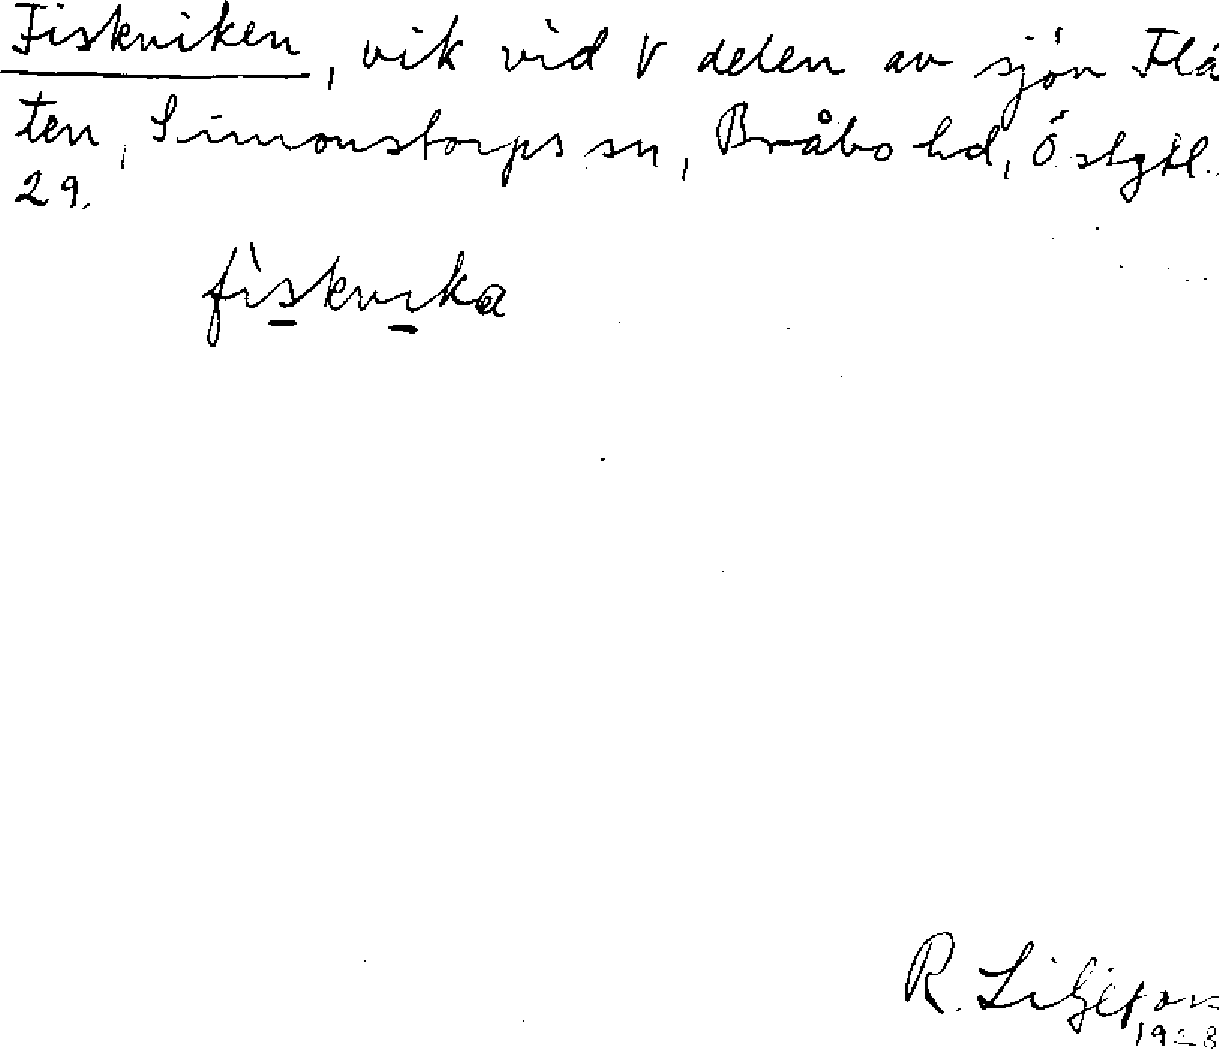 Fiskviken, vik vid V delen av sjön Flå
ten, Simonstorps sn, Bråbo hd, Östgtl.
29.
fìskvika
R. Liljefors
1928